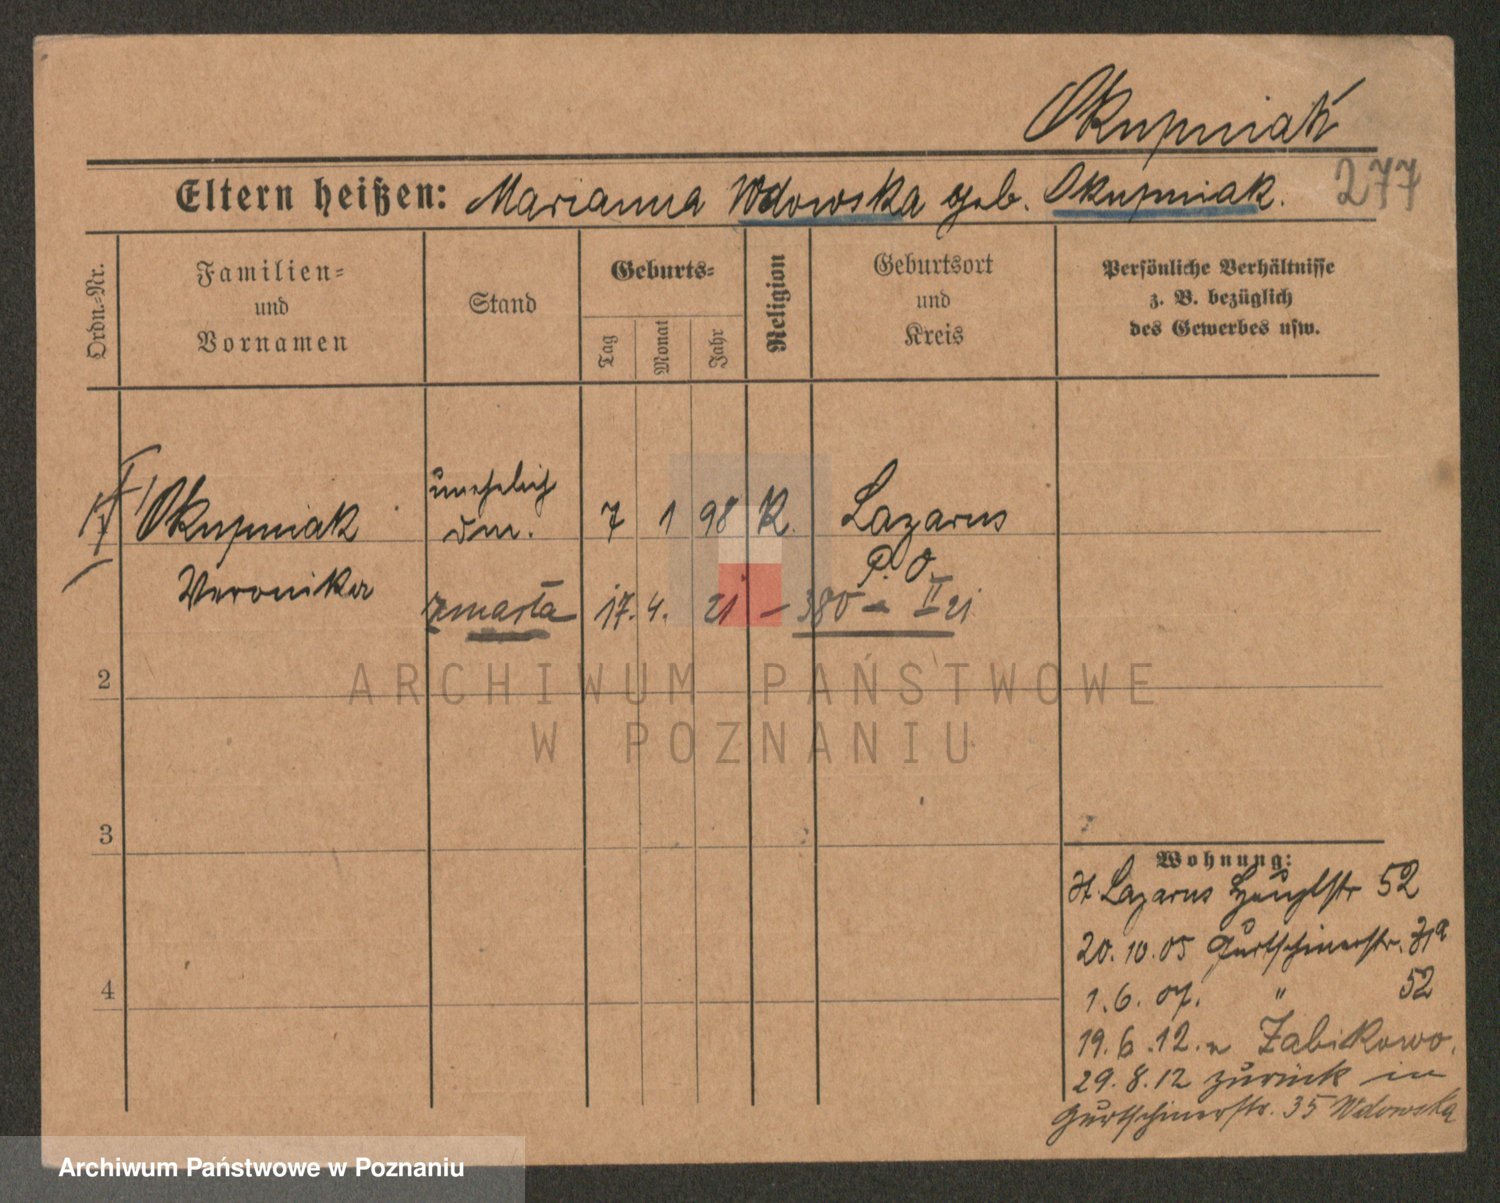 Okupniak
277
Eltern heißen: Marianna Wdowska geb. Okupniak.
Ordn.-Nr.
Familien-
und
Vornamen
Stand
Geburts-
Tag
Monat
Jahr
Religion
Geburtsort
und
Kreis
Persönliche Verhältnisse
z. B. bezüglich
des Gewerbes usw.
Okupniak
Veronika
unehelich
7 1 98 K. Lazarus
P. O.
zmarła 17. 4. 21 – 380 – II 21
2
3
4
Wohnung:
St. Lazarus Hauptstr 52
20.10.05 Gurtschinerstr. 31a
1.6.07. " 52
19.6.12. n Zabikowo.
29.8.12 zurück in
Gurtschinerstr. 35 Wdowska
ARCHIWUM PAŃSTWOWE
W POZNANIU
Archiwum Państwowe w Poznaniu